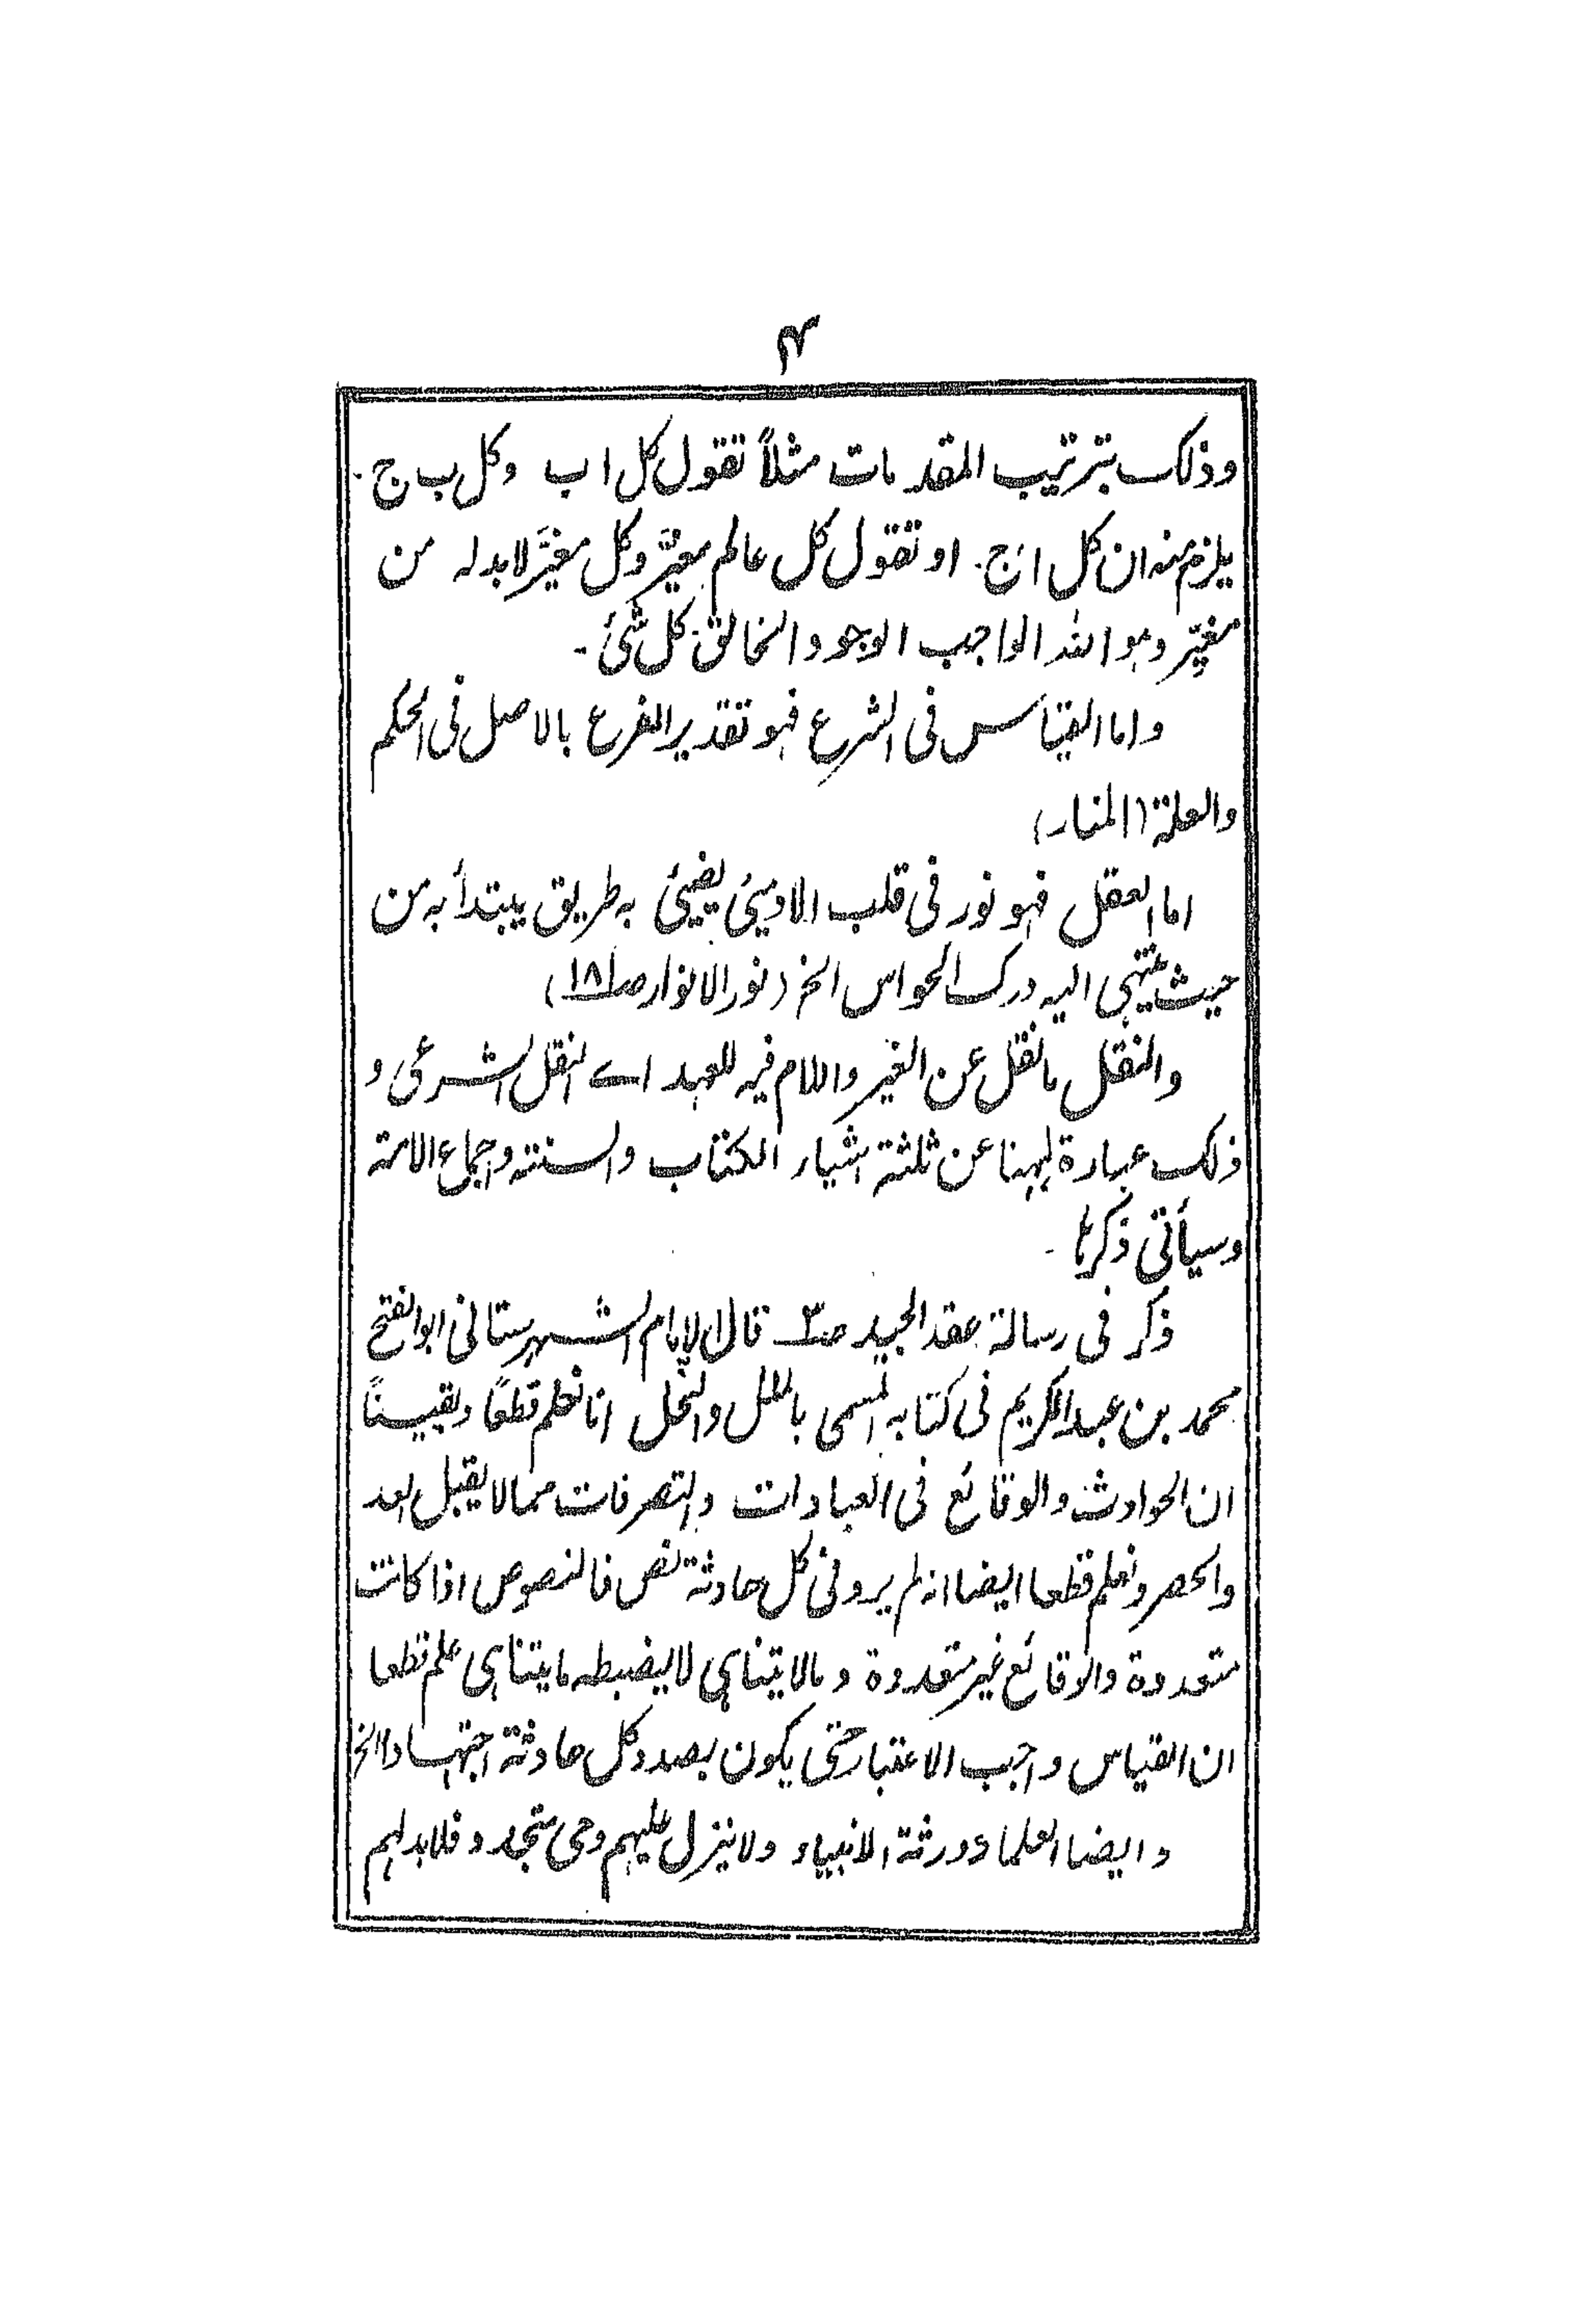 ۴
وذلک بترتیب المقدمات مثلاً تقول کل ا ب وکل ب ج ۔
یلزم منہ ان کل ا ج ۔ او تقول کل عالم مغیَّر وکل مغیَّر لابد لہ من
مغیِّر وہو اللہ الواجب الوجود الخالق کل شئ ۔
واما القیاس فی الشرع فہو تقدیر الفرع بالاصل فی الحکم
والعلۃ (المنار)
اما العقل فہو نور فی قلب الاٰدمیّ یضیئ بہ طریق یبتدأ بہ من
حیث ینتہی الیہ درک الحواس الخ (نور الانوار صـ۱۸۱)
والنقل ما نقل عن الغیر واللام فیہ للعہد اے النقل الشرعی و
ذلک عبارۃ لہہنا عن ثلثۃ اشیاء الکتاب والسنتہ واجماع الامۃ
وسیأتی ذکرہا ۔
ذکر فی رسالۃ عقد الجید صـ۳ قال الامام الشہرستانی ابو الفتح
محمد بن عبد الکریم فی کتابہ المسمی بالملل والنحل انا نعلم قطعًا ویقینًا
ان الحوادث والوقائع فی العبادات والتصرفات مما لا یقبل العد
والحصر ونعلم قطعا ایضا انہ لم یرو فی کل حادثۃ نص فالنصوص اذا کانت
متعدودۃ والوقائع غیر متعدودۃ وما لا یتناہی لا یضبطہ ما یتناہی علم قطعا
ان القیاس واجب الاعتبار حتی یکون بصدد کل حادثۃ اجتہاد الخ
وایضا العلماء ورثۃ الانبیاء ولا ینزل علیہم وحی متجدد فلابد لہم